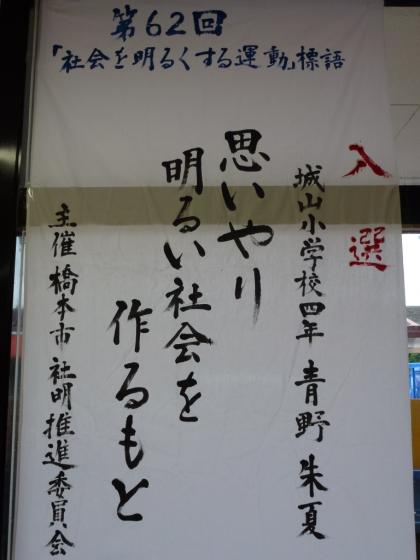 第62回
「社会を明るくする運動」標語
入選
城山小学校四年 青野 朱夏
思いやり
明るい社会を
作るもと
主催 橋本市 社明推進委員会